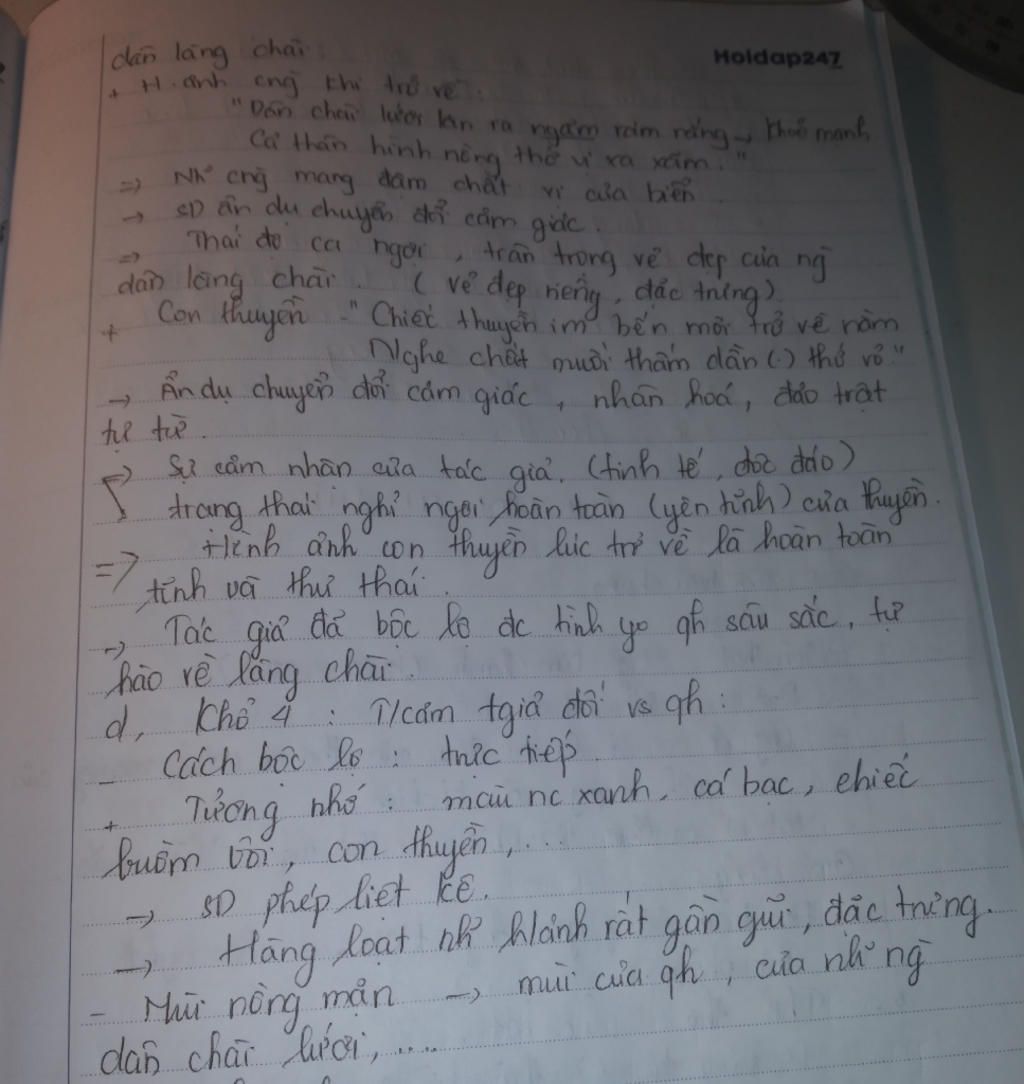 dân làng chài:
Hoidap247
+ H.ảnh cng khi trở về:
"Dân chài lưới làn ra ngăm rám nắng → khoẻ mạnh
Cả thân hình nồng thở vị xa xăm."
=> Nh~ cng mang đậm chất vị của biển.
→ SD ẩn dụ chuyển đổi cảm giác.
=> Thái độ ca ngợi, trân trọng vẻ đẹp của ng
dân làng chài. (vẻ đẹp riêng, đặc trưng)
+ Con thuyền - "Chiếc thuyền im bến mỏi trở về nằm
Nghe chất muối thấm dần (.) thớ vỏ"
→ Ẩn dụ chuyển đổi cảm giác, nhân hoá, đảo trật
tự từ.
→ Sự cảm nhận của tác giả. (tinh tế, độc đáo)
trạng thái nghỉ ngơi hoàn toàn (yên tĩnh) của thuyền.
=> Hình ảnh con thuyền lúc trở về là hoàn toàn
tĩnh và thư thái.
→ Tác giả đã bộc lộ đc tình yo qh sâu sắc, tự
hào về làng chài.
d, Khổ 4 : T/cảm tgiả đối vs qh :
- Cách bộc lộ : trực tiếp.
+ Tưởng nhớ : màu nc xanh, cá bạc, chiếc
buồm vôi, con thuyền,...
→ SD phép liệt kê.
→ Hàng loạt nh~ h/ảnh rất gần gũi, đặc trưng.
- Mùi nồng mặn → mùi của qh, của nh~ ng
dân chài lưới,....